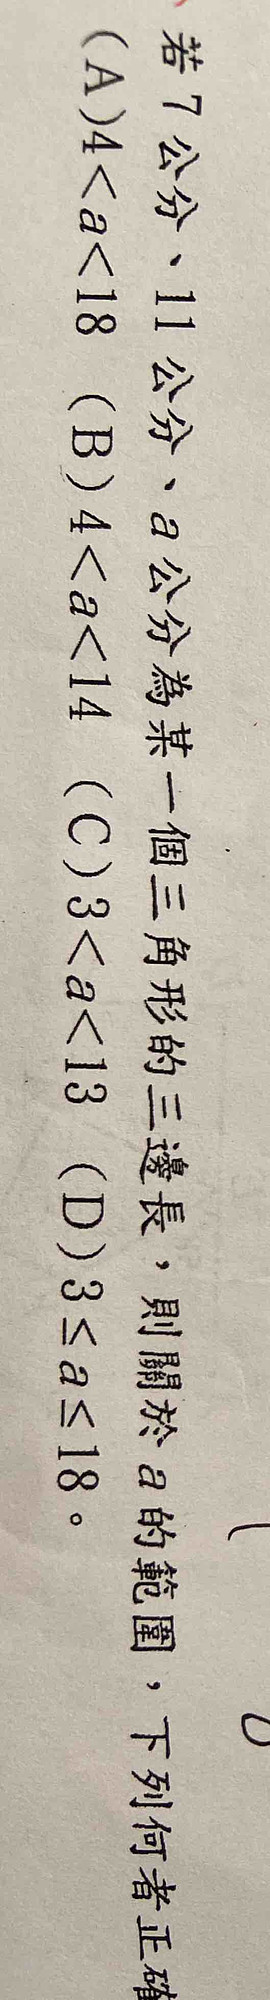 若 7 公分、11 公分、a 公分為某一個三角形的三邊長，則關於 a 的範圍，下列何者正確
(A)4<a<18 (B)4<a<14 (C)3<a<13 (D)3≤a≤18。